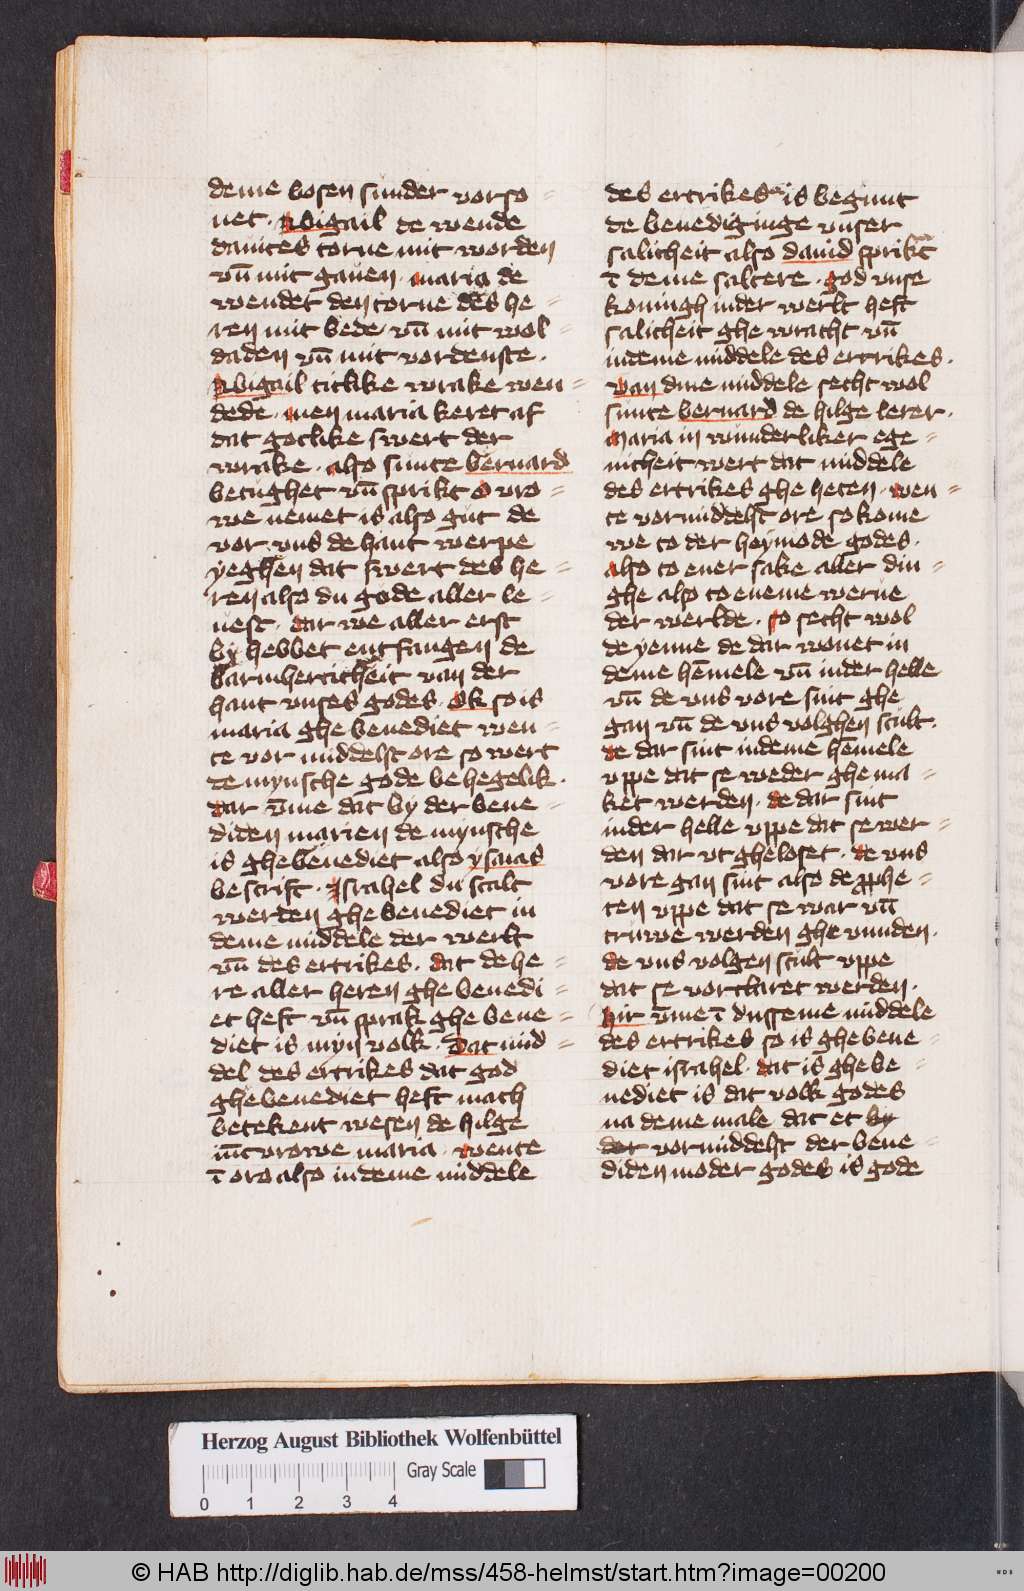 deme bosen sunder vorso =
net · Abigail de wende
dauites torne mit worden
vn̄ mit gauen · maria de
wendet den torne des he =
ren mit bede vn̄ mit wol =
daden vn̄ mit vordenste ·
Abigail titlike wrake wen =
dede · men maria keret af
dat gotlike swert der
wrake · also sunte bernard
betughet vn̄ sprikt o vro =
we nemet is also gut de
vor vns de hant werpe
yeghen dat swert des he =
ren also du gode aller le =
uest · dar we aller erst
by hebbet entfangen de
barmherticheit van der
hant vnses godes · Ok so is
maria ghe benediet wen =
te vor middelst ore so wert
de mynsche gode behegelik ·
dar v̄me dat by der bene =
diden marien de mynsche
is ghebenediet also ysaias
bescrift · Israhel du scalt
werden ghe benediet in
deme middele der werlt
vn̄ des ertrikes · dat de he =
re aller heren ghe benedi =
et heft vn̄ sprak ghe bene =
diet is myn volk · Dat mid =
del des ertrikes dat god
ghebenediet heft mach
betekent wesen de hilge
iūcvrowe maria · wente
ī ora also in deme middele
des ertrikes is begunt
de benediginge vnser
salicheit also dauid sprikt
ī deme saltere · god vnse
koningh in der werlt heft
salicheit ghe wracht vn̄
in deme middele des ertrikes ·
van dme middele secht wol
sunte bernard de hilge lerer ·
Maria in wunderliker ege =
nicheit wert dat middele
des ertrikes ghe heten · wen =
te vormiddelst ore so kome
we to der heymode godes ·
also to ener sake aller din =
ghe also to eneme werue
der werlde · so secht wol
de yenne de dar wonet in
deme hēmele vn̄ in der helle
vn̄ de vns vore sint ghe
gan vn̄ de vns volghen scult ·
de dar sint in deme hēmele
vppe dat se weder ghe ma =
ket werden · de dar sint
in der helle vppe dat se wer =
den dar vt gheloset · de vns
vore gan sint also de p̄phe =
ten vppe dat se war vn̄
truwe werden ghe vunden ·
de vns volgen scult vppe
dat se vorclaret werden ·
hir v̄me ī dusseme middele
des ertrikes so is ghe bene =
diet israhel · dat is ghe be =
nediet is dat volk godes
na deme male dat et by
der vormiddelst der bene =
diden moder godes is gode
Herzog August Bibliothek Wolfenbüttel
Gray Scale
0 1 2 3 4
© HAB http://diglib.hab.de/mss/458-helmst/start.htm?image=00200